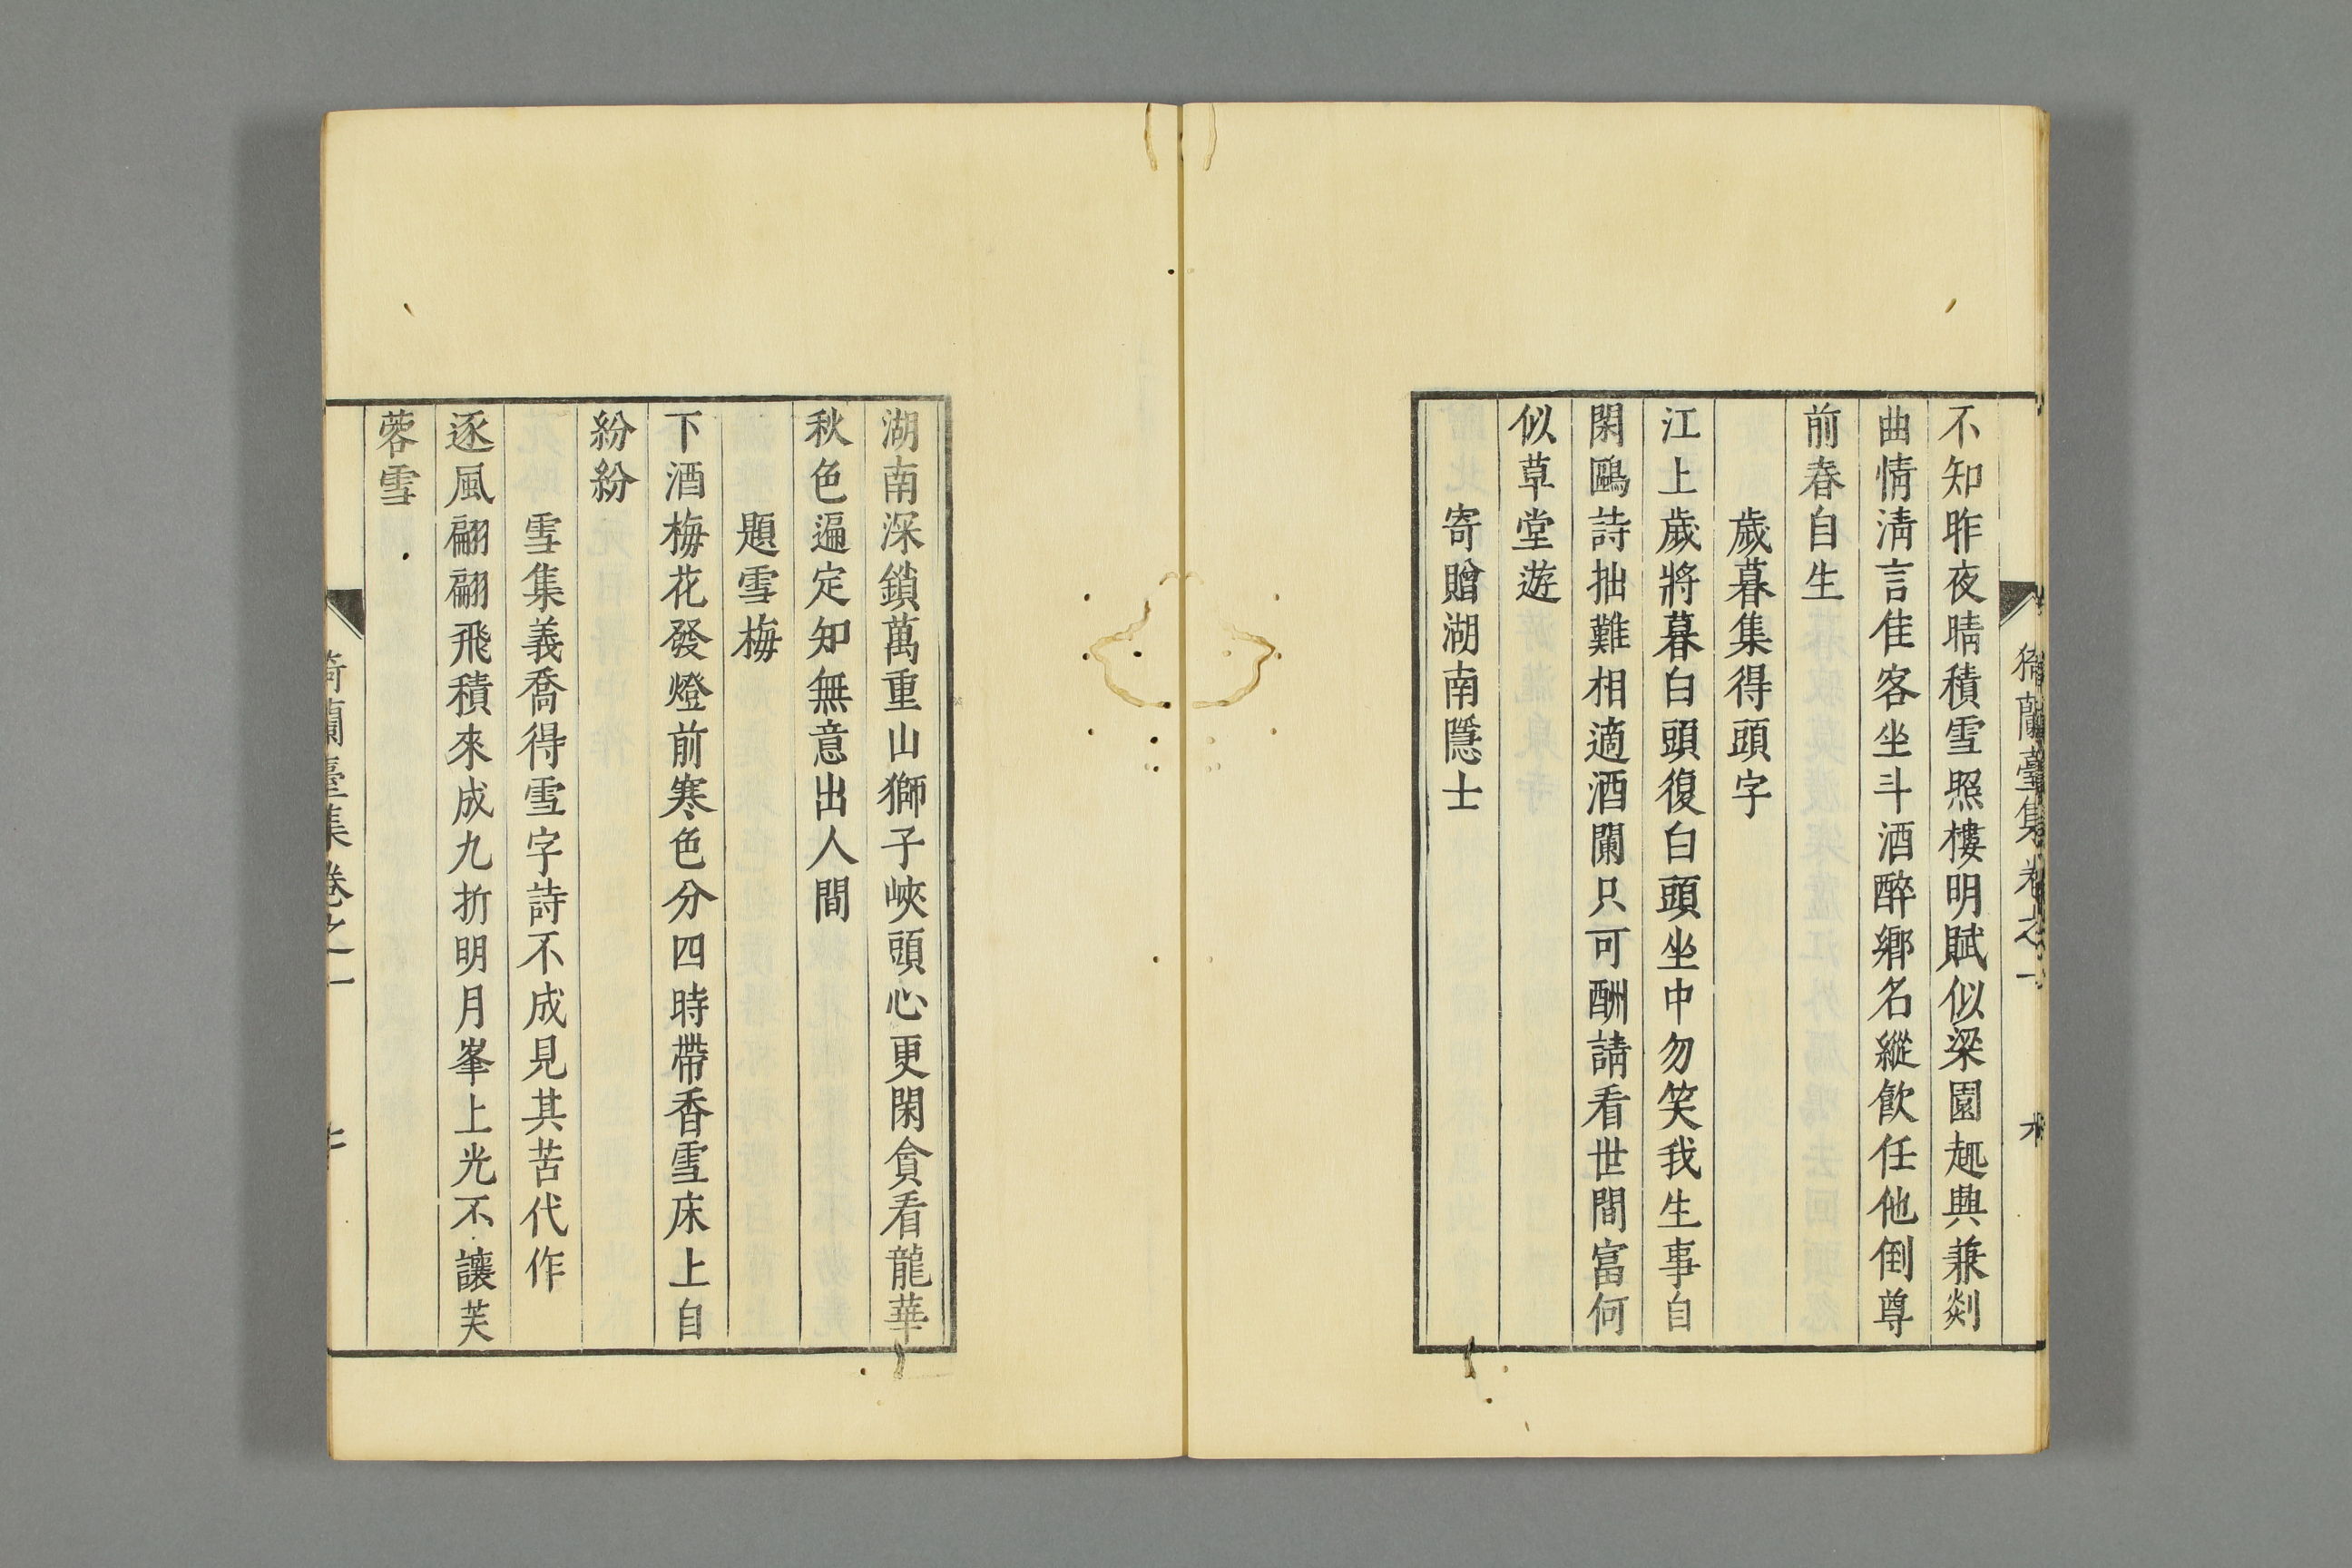 不知昨夜晴積雪照樓明賦似梁園趣興兼剡
曲情清言佳客坐斗酒醉鄉名縱飲任他倒尊
前春自生
歲暮集得頭字
江上歲將暮白頭復白頭坐中勿笑我生事自
閑鷗詩拙難相適酒闌只可酬請看世間富何
似草堂遊
寄贈湖南隱士
湖南深鎖萬重山獅子峽頭心更閑貪看龍華
秋色遍定知無意出人間
題雪梅
下酒梅花發燈前寒色分四時帶香雪床上自
紛紛
雪集義喬得雪字詩不成見其苦代作
逐風翩翩飛積來成九折明月峯上光不讓芙
蓉雪
蘭臺集卷之一